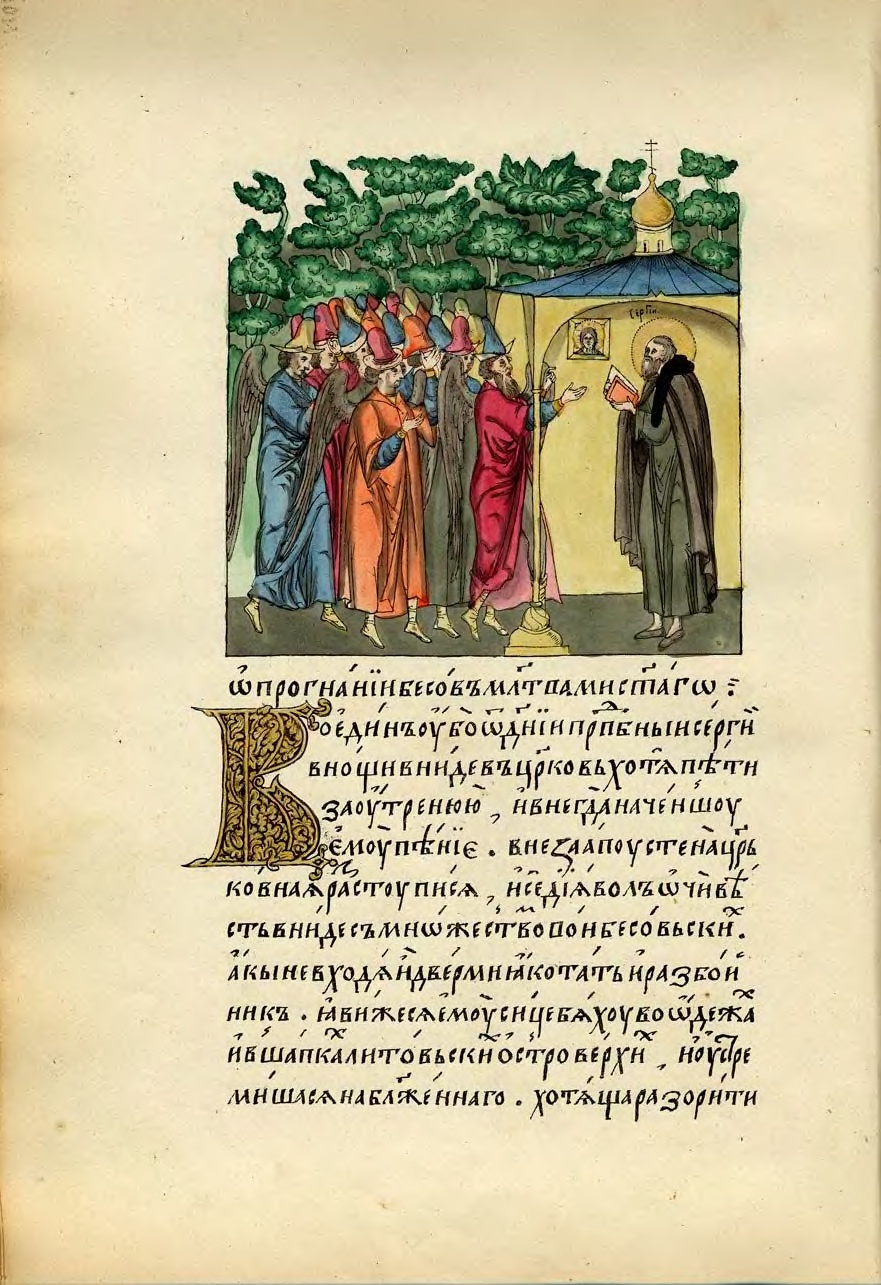 Сергїи
Ѡ прогнанїи бесовъ мл҃твами ст҃аго ⁘
Во единъ ѹбо ѿ дн҃їи прпⷣбныи серги
в нощи вниде въ цр҃ковь хотѧ пѣти
заѹтренюю, и внегда наченшоу
емоу пѣнїе. внезаапоу стена цр҃ь
ковнаѧ растоуписѧ, и се дїѧволъ ѡчивѣ
сть вниде съ множествⷨо вои бесовьскиⷯ.
акы не входѧи двермі ꙗко тать и разбои
никъ. ꙗвижесѧ емоу сице бѧхоу во ѡдежаⷯ
и в шапкаⷯ литовьскиⷯ островерхиⷯ, и оустре
мишасѧ на бл҃женнаго. хотѧща разорити